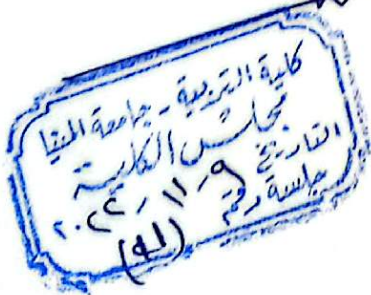 كلية التربية - جامعة المنيا
مجلس الكلية
التاريخ ٩ - ١١ - ٢٠٢٢
جلسة رقم